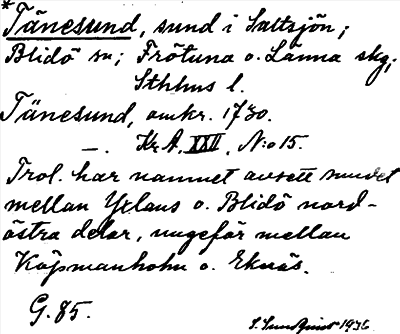 *Tänesund, sund i Saltsjön;
Blidö sn; Frötuna o. Länna skg;
Sthlms l.
Tänesund, omkr. 1730.
—. Kr A, XXII, N:o 15.
Trol. har namnet avsett sundet
mellan Yxlans o. Blidö nord-
östra delar, ungefär mellan
Köpmanholm o. Eknäs.
G. 85.
S. Sundquist 1936